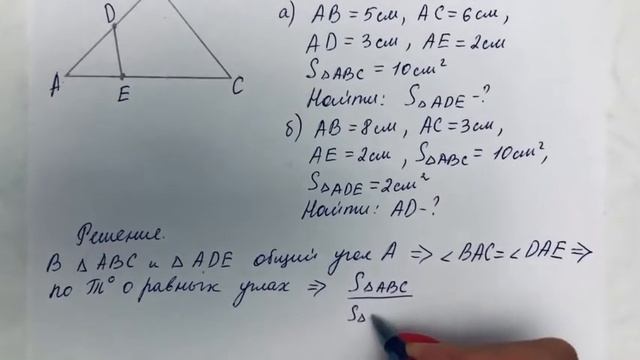 D
A
E
C
а) AB = 5см, AC = 6см,
AD = 3см, AE = 2см
S△ABC = 10см²
Найти: S△ADE - ?
б) AB = 8см, AC = 3см,
AE = 2см, S△ABC = 10см²,
S△ADE = 2см²
Найти: AD - ?
Решение.
В △ABC и △ADE общий угол A ⇒ ∠BAC = ∠DAE ⇒
по Tᵐᵒ о равных углах ⇒ S△ABC
S△